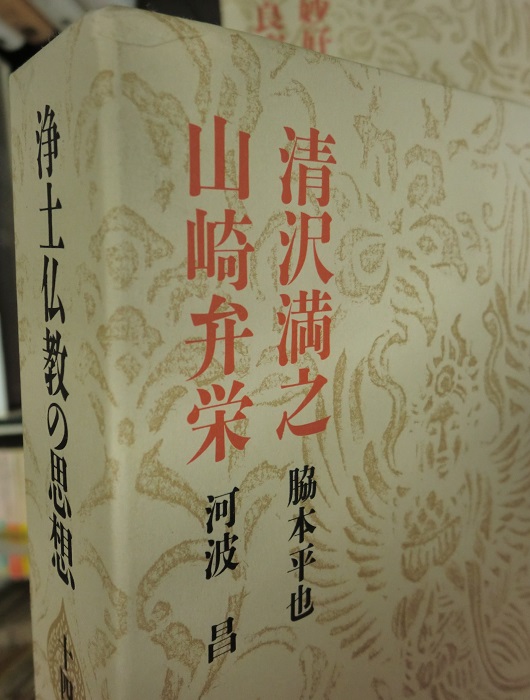 清沢満之 脇本平也
山崎弁栄 河波 昌
浄土仏教の思想 十四